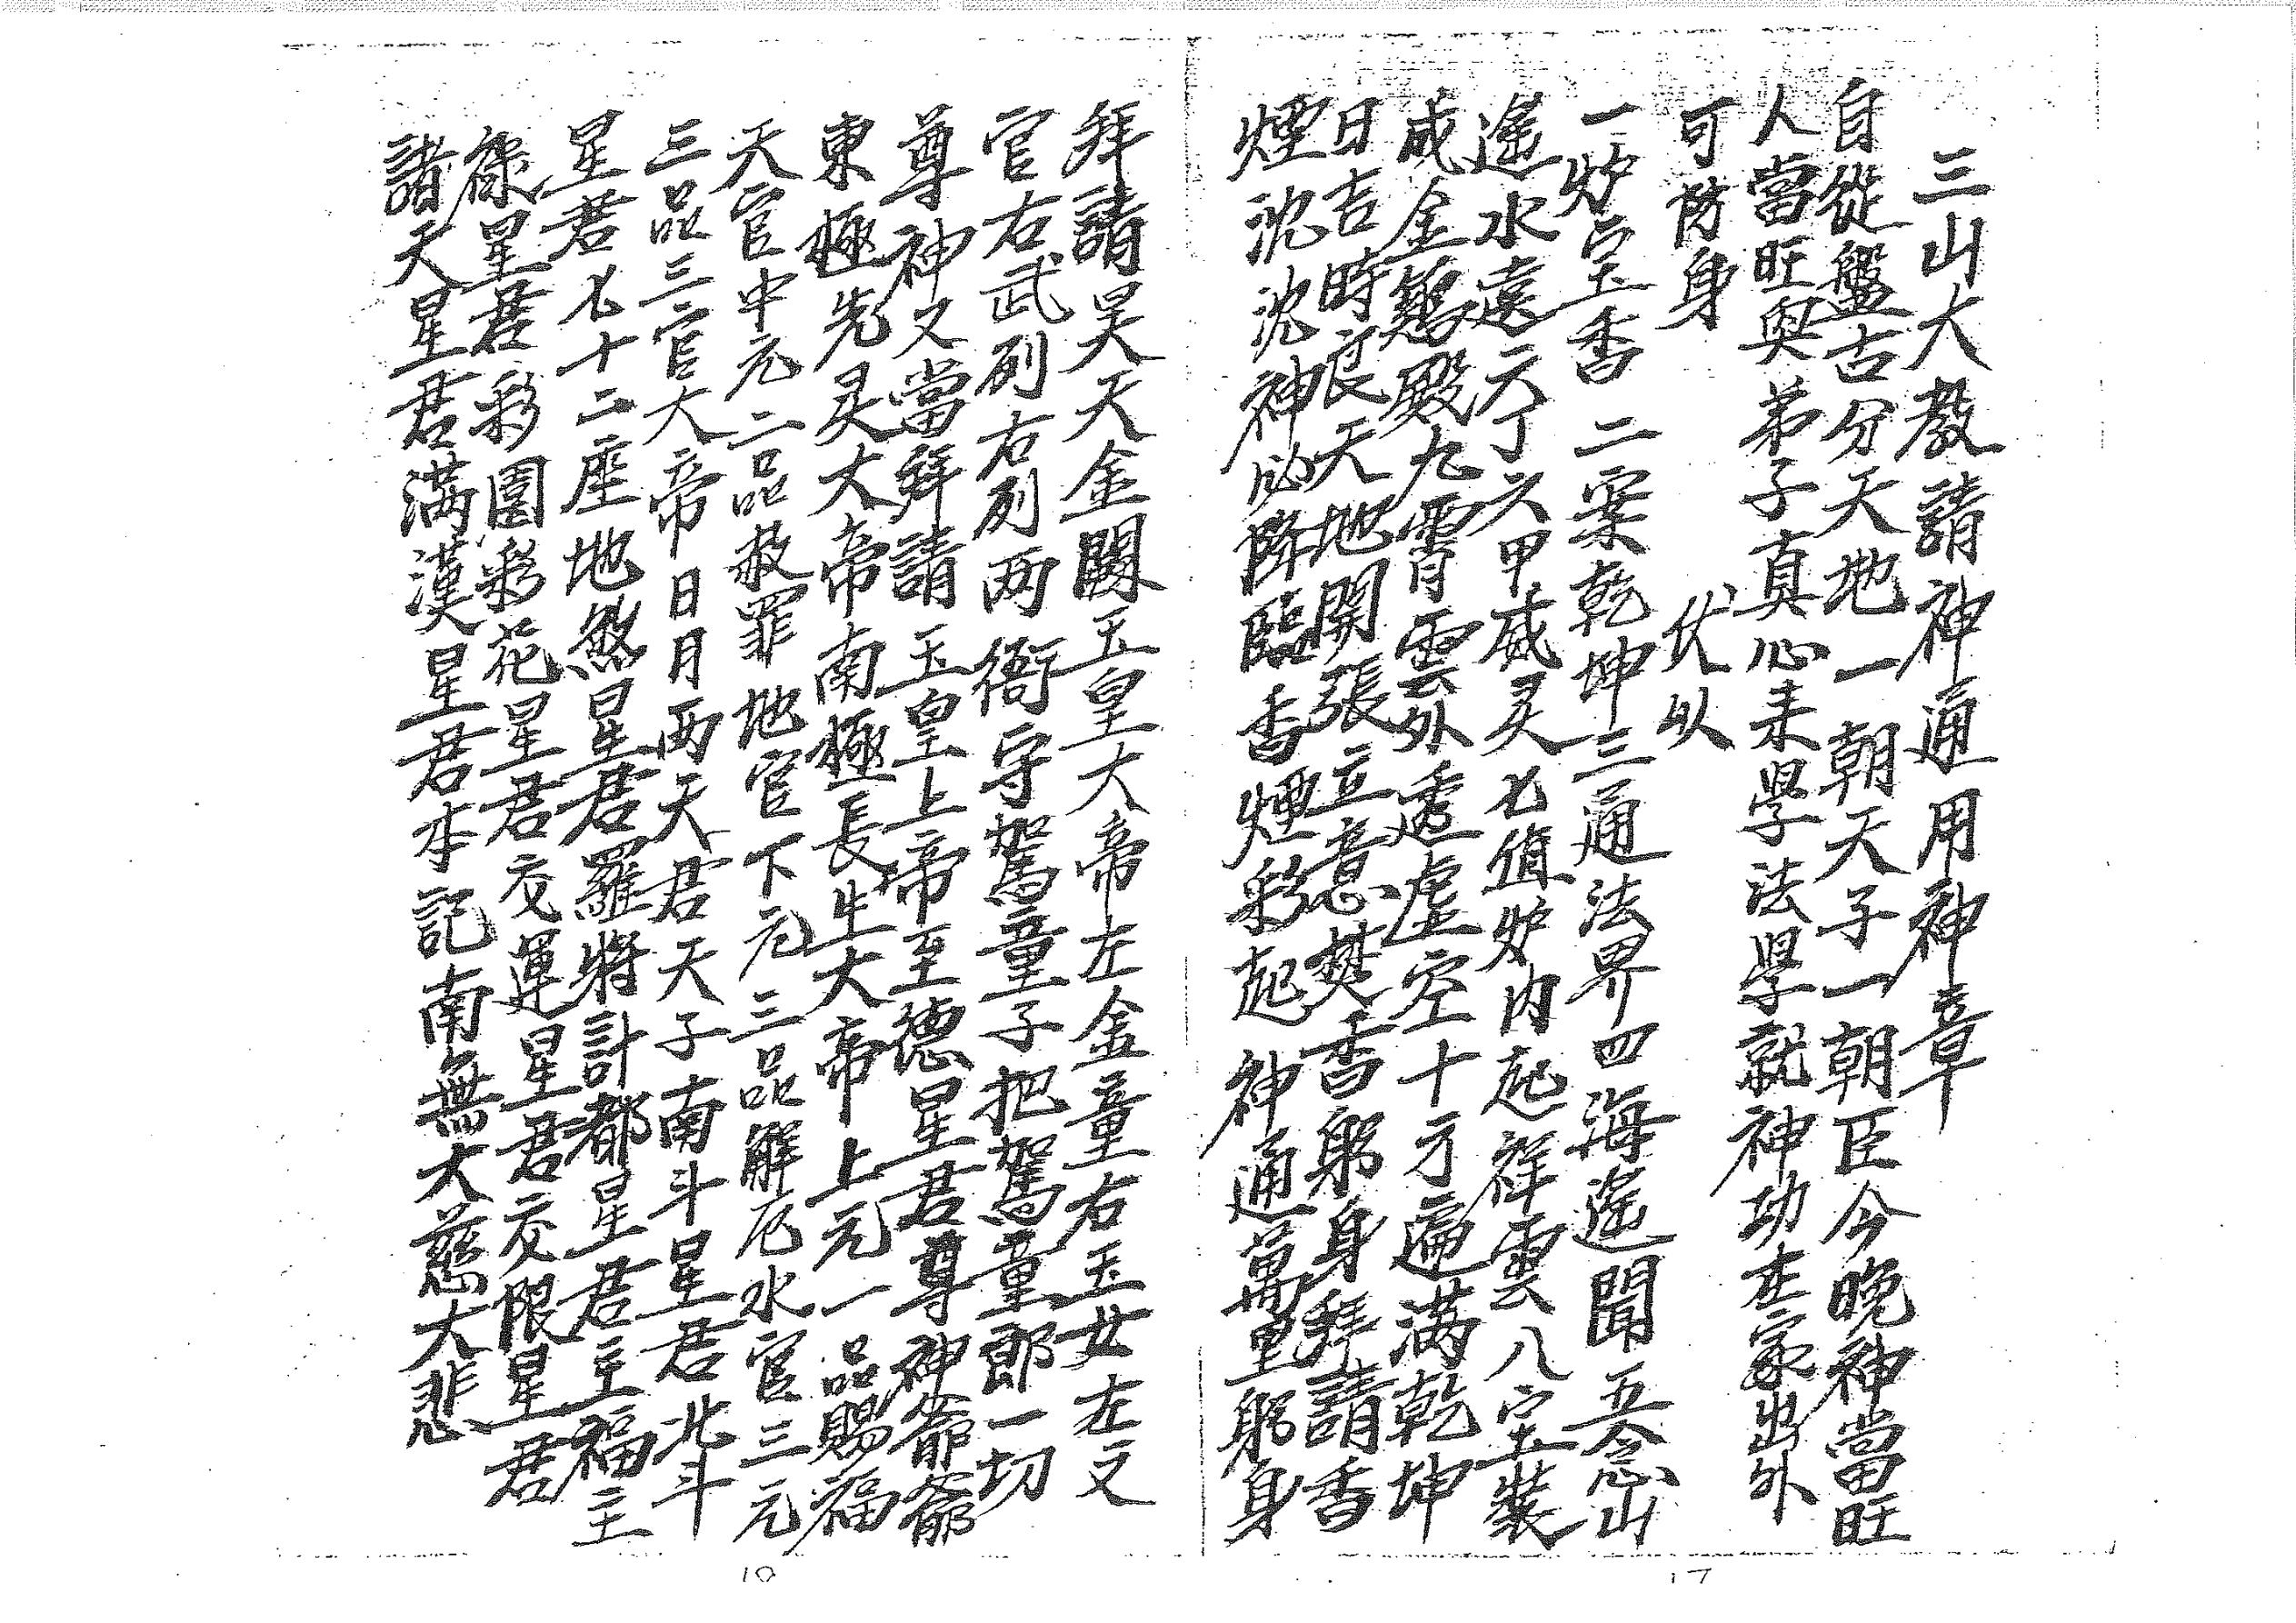 三山大教請神通用神章
自從盤古分天地一朝天子一朝臣今晚神當旺
人當旺與弟子真心來學法學就神功在家出外
可防身　伏以
一炉宝香二案乾坤三通法界四海遙聞五念山
遙水遠六丁六甲威灵七值炉内起祥雲八宝裝
成金鷄殿九霄雲外透虛空十方遍满乾坤
日吉時良天地開張立意焚香躬身拜請香
煙沈沈神必降臨香煙彩起神通萬里躬身
拜請昊天金闕玉皇大帝左金童右玉女左文
官右武列右列两衙守駕童子把駕童郎一切
尊神又當拜請玉皇上帝至德星君尊神爺爺
東極先灵大帝南極長生大帝上元一品賜福
天官中元二品赦罪地官下元三品解厄水官三元
三品三官大帝日月两天君天子南斗星君北斗
星君七十二座地煞星君羅将計都星君主福主
祿星君彩園彩花星君交運星君交限星君
諸天星君满漢星君本記南無大慈大悲
10
17